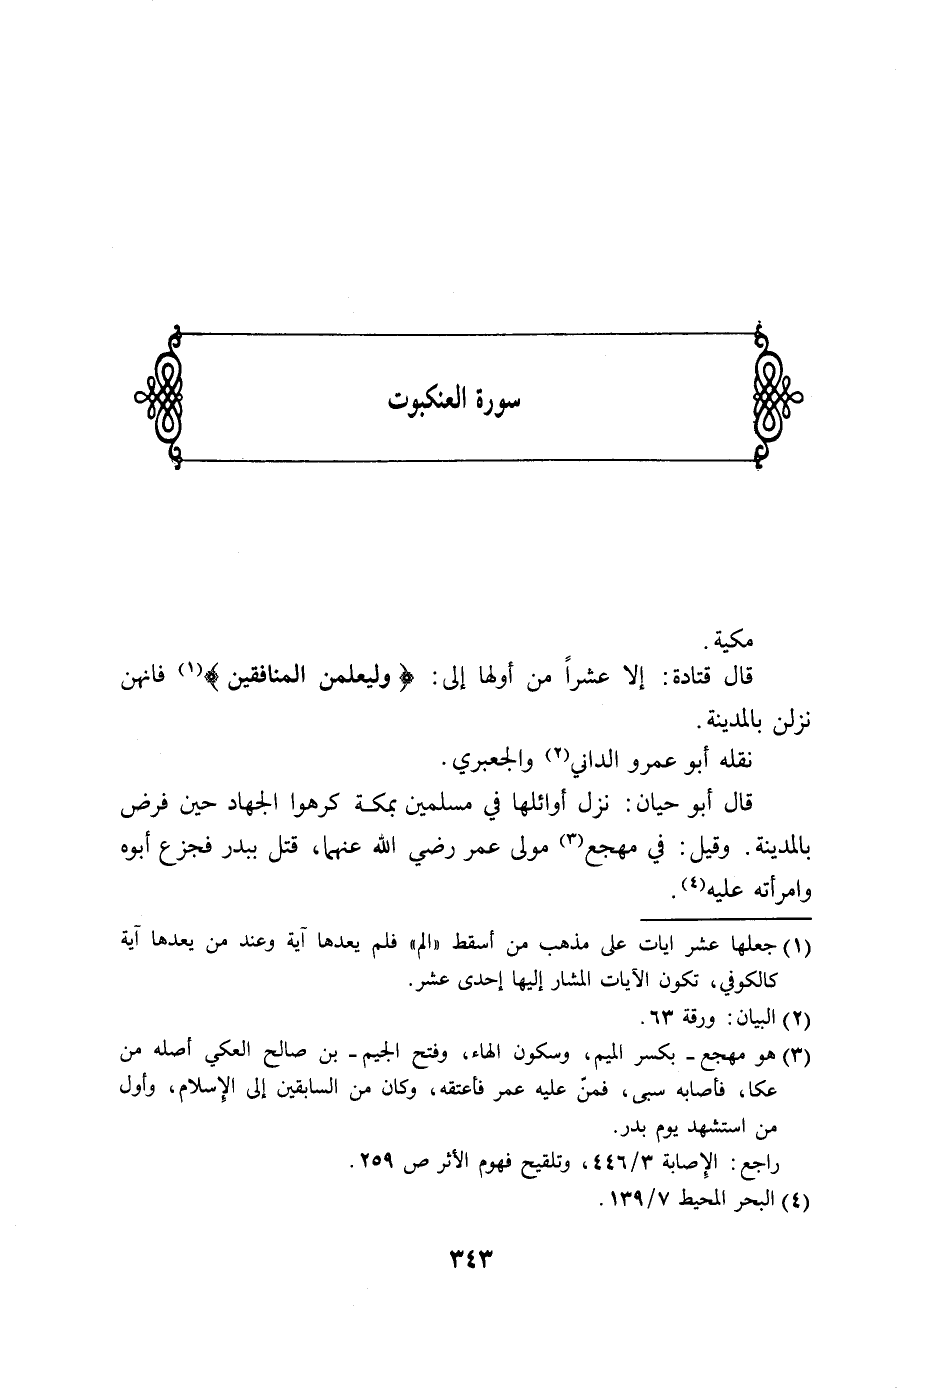 سورة العنكبوت
مكية.
قال قتادة: إلا عشراً من أولها إلى: ﴿ وليعلمن المنافقين ﴾(١) فانهن
نزلن بالمدينة.
نقله أبو عمرو الداني(٢) والجعبري.
قال أبو حيان: نزل أوائلها في مسلمين بمكة كرهوا الجهاد حين فرض
بالمدينة. وقيل: في مهجع(٣) مولى عمر رضي الله عنهما، قتل ببدر فجزع أبوه
وامرأته عليه(٤).
(١) جعلها عشر ايات على مذهب من أسقط «الم» فلم يعدها آية وعند من يعدها آية
كالكوفي، تكون الآيات المشار إليها إحدى عشر.
(٢) البيان: ورقة ٦٣.
(٣) هو مهجع - بكسر الميم، وسكون الهاء، وفتح الجيم - بن صالح العكي أصله من
عكا، فأصابه سبى، فمنّ عليه عمر فأعتقه، وكان من السابقين إلى الإسلام، وأول
من استشهد يوم بدر.
راجع: الإصابة ٤٤٦/٣، وتلقيح فهوم الأثر ص ٢٥٩.
(٤) البحر المحيط ١٣٩/٧.
٣٤٣